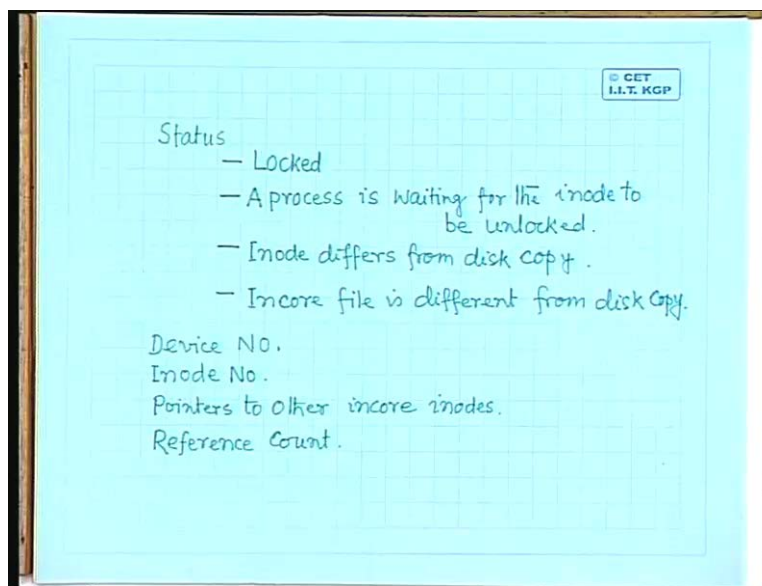 © CET
I.I.T. KGP
Status
— Locked
— A process is waiting for the inode to
be unlocked.
— Inode differs from disk copy.
— Incore file is different from disk copy.
Device No.
Inode No.
Pointers to other incore inodes.
Reference Count.